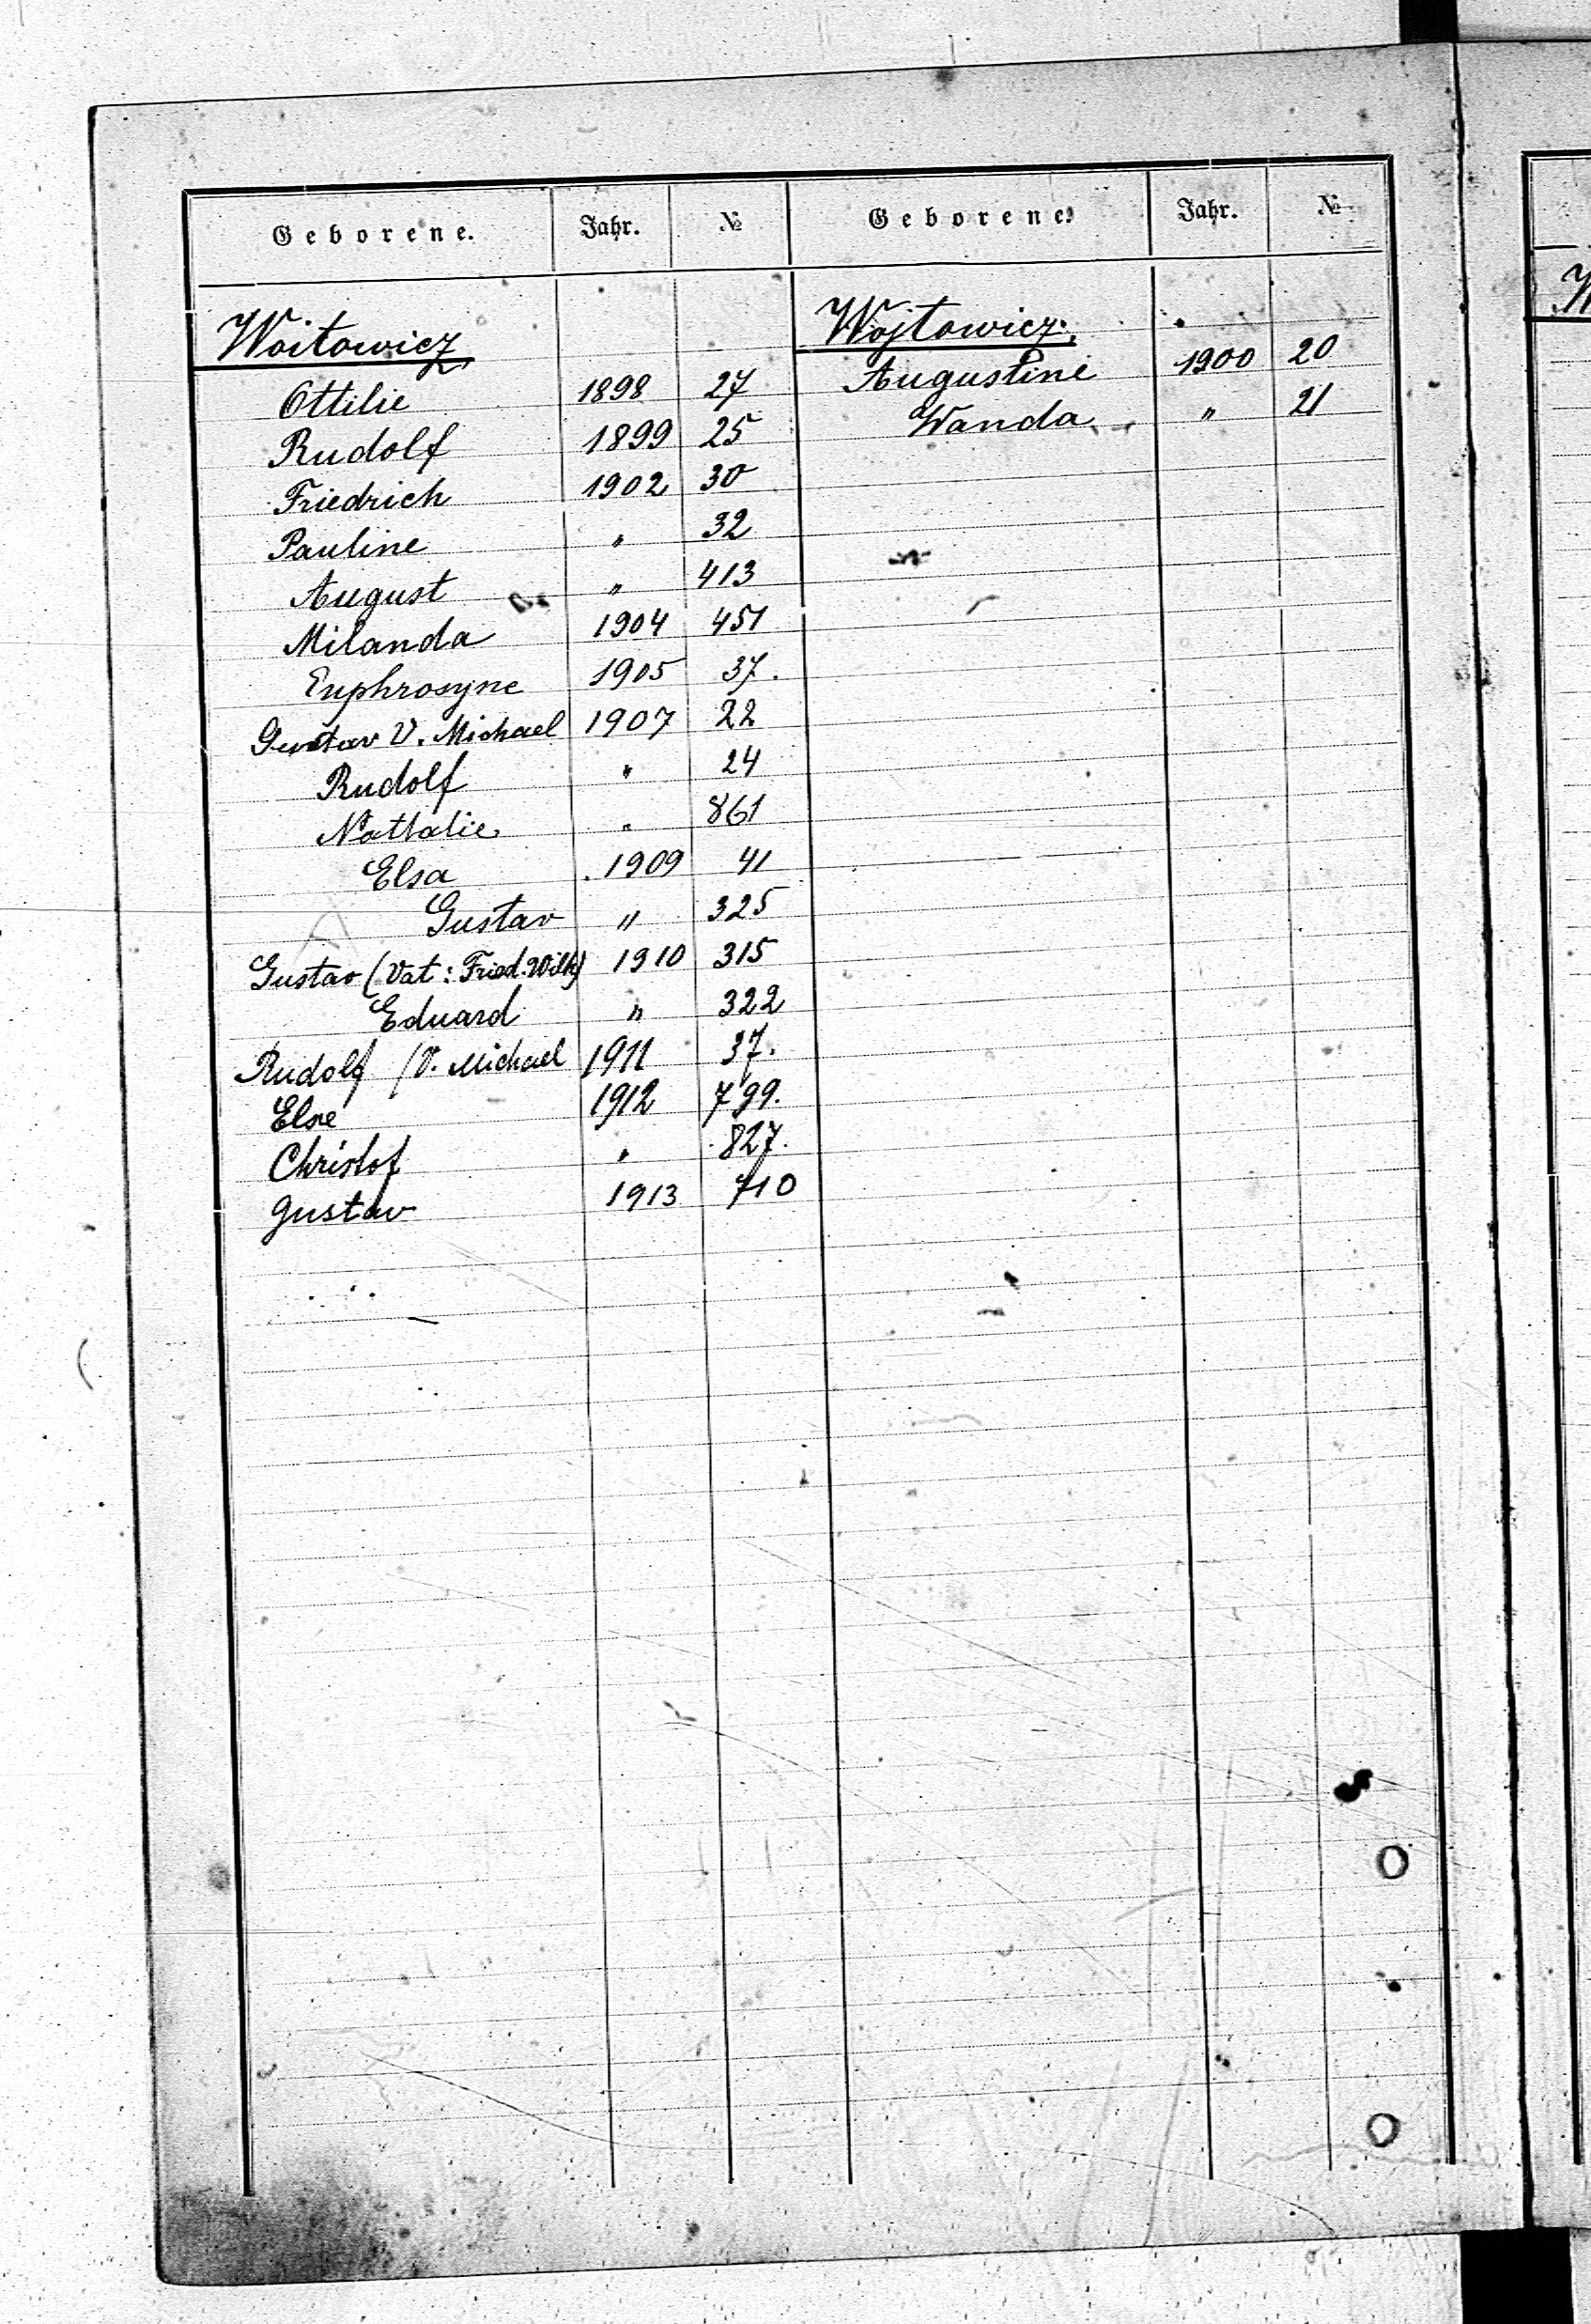 Geborene. Jahr. №
Woitowicz
Ottilie 1898 27
Rudolf 1899 25
Friedrich 1902 30
Pauline " 32
August " 413
Milanda 1904 451
Euphrosyne 1905 37.
Gustav V. Michael 1907 22
Rudolf " 24
Nathalie " 861
Elsa 1909 41
Gustav " 325
Gustav (Vat: Fried. Wilh) 1910 315
Eduard " 322
Rudolf / V. Michael 1911 37.
Else 1912 799.
Christof " 827.
Gustav 1913 710
Geborene. Jahr. №
Wojtowicz.
Augustine 1900 20
Wanda " 21